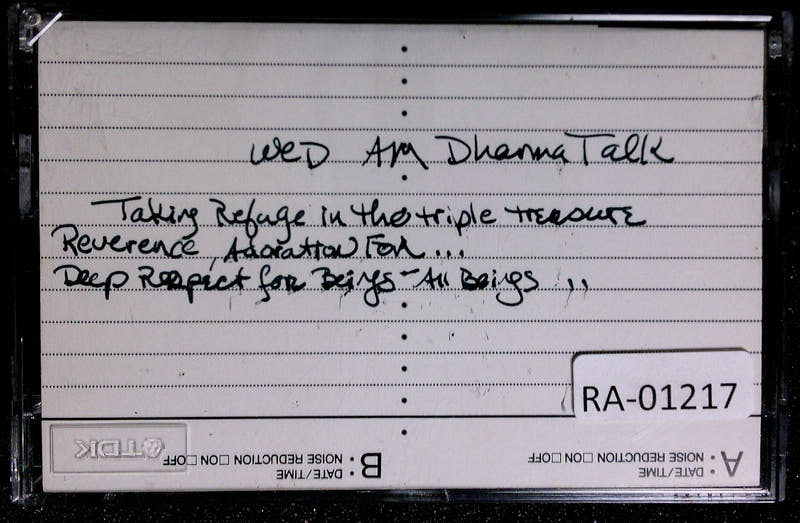 WED AM Dharma Talk
Taking Refuge in the triple treasure
Reverence, Adoration For...
Deep Respect for Beings - All Beings ,,
RA-01217
TDK
B • DATE/TIME
• NOISE REDUCTION □ON □OFF
A • DATE/TIME
• NOISE REDUCTION □ON □OFF